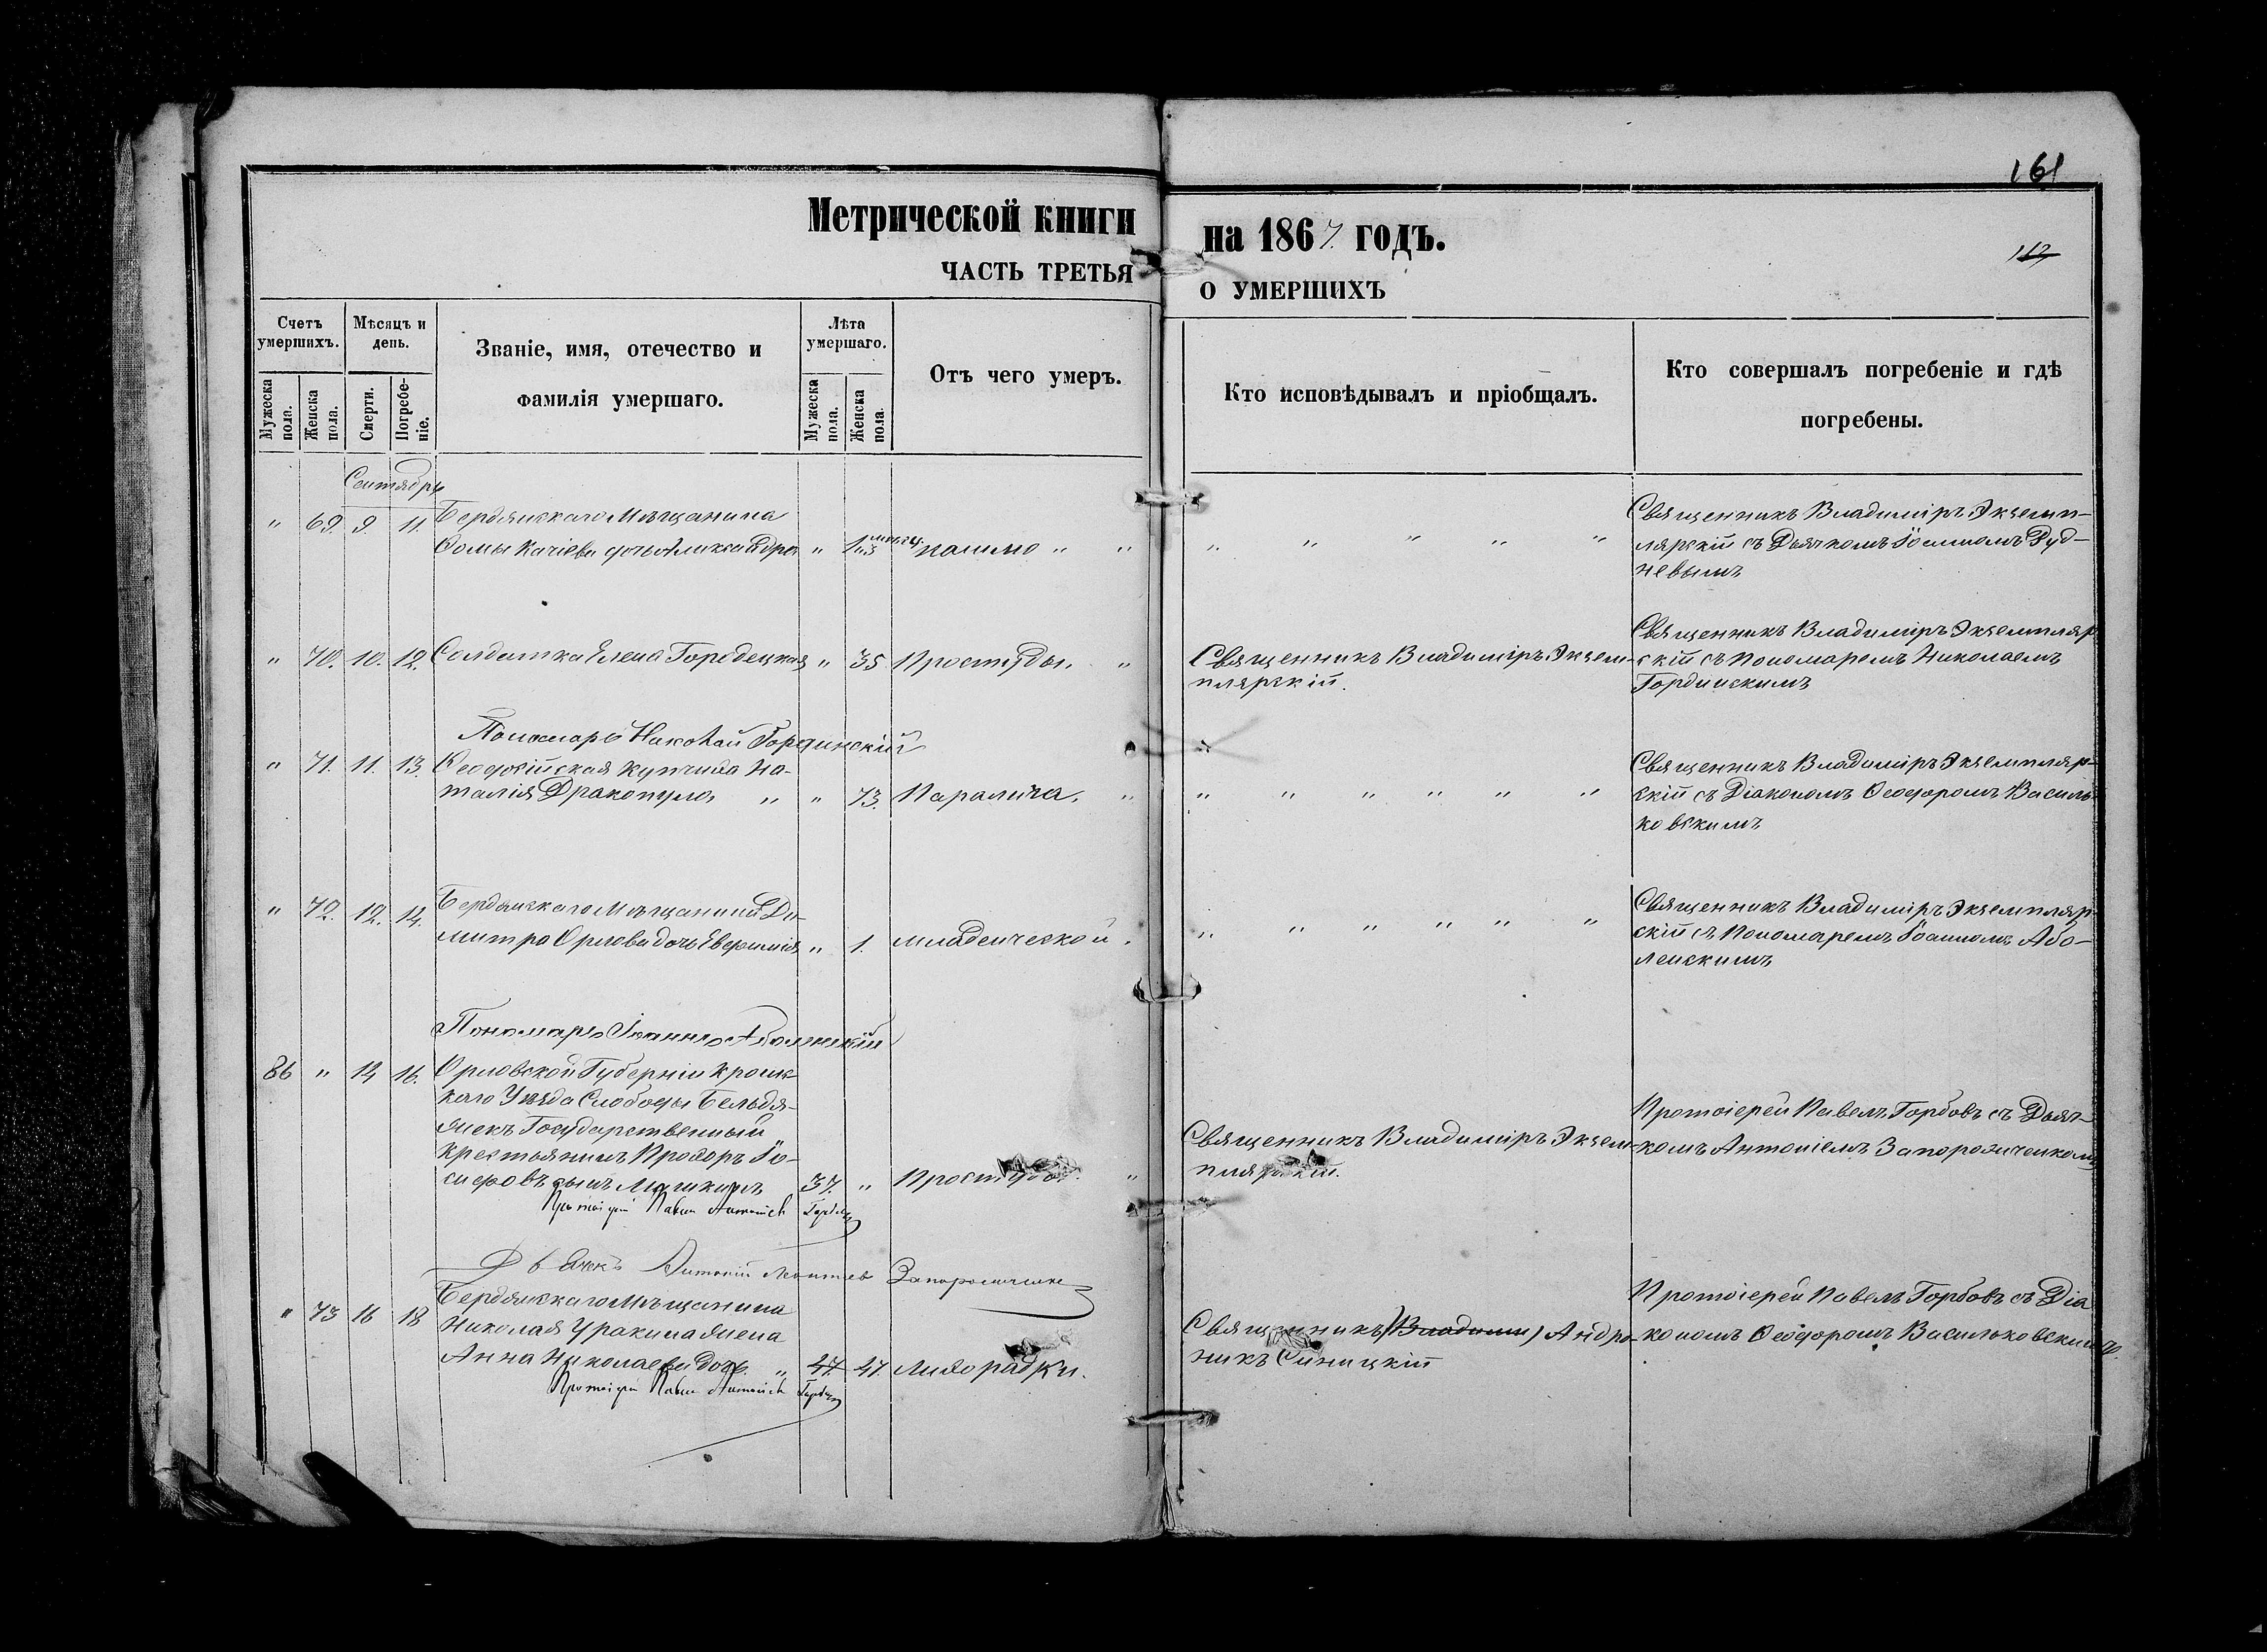 161
Метрической книги на 1867. годъ.
119
ЧАСТЬ ТРЕТЬЯ О УМЕРШИХЪ
Счетъ умершихъ.
Мужеска пола.
Женска пола.
Мѣсяцъ и день.
Смерти.
Погребеніе.
Званіе, имя, отечество и
фамилія умершаго.
Лѣта умершаго.
Мужеска пола.
Женска пола.
Отъ чего умеръ.
Кто исповѣдывалъ и пріобщалъ.
Кто совершалъ погребеніе и гдѣ
погребены.
Сентябрь
" 69. 9. 11. Бердянскаго Мѣщанина
Ѳомы дочь Александра "
" " " " "
Священникъ Владиміръ Экземп-
лярскій съ Дьячкомъ Іоанномъ Руд-
невымъ
" 70. 10. 12. Солдатка Елена Городецкая " 35 Простуды. "
Священникъ Владиміръ Экзем-
плярскій.
Священникъ Владиміръ Экземпляр-
скій съ Пономаремъ Николаемъ
Гординскимъ
Пономарь Николай Гординскій
" 71. 11. 13. Ѳеодосійская Купчиха На-
талія Дракопуло " " 73. Паралича. "
" " " " " "
Священникъ Владиміръ Экземпляр-
скій съ Діакономъ Ѳеодоромъ Василь-
ковскимъ
" 72. 12. 14. Бердянскаго Мѣщанина Ди-
митра Орлова дочь Евфимія " 1. младенческой.
" " " " " "
Священникъ Владиміръ Экземпляр-
скій съ Пономаремъ Іоанномъ Або-
ленскимъ
Пономарь Іоаннъ Аболенскій
86 " 14 16. Орловской Губерніи Кромс-
каго Уѣзда Слободы Бельдя-
Государственный
крестьянинъ Прохоръ Іо-
сифовъ сынъ 37. " Простуды. "
Священникъ Владиміръ Экзем-
плярскій.
Протоіерей Павелъ Горбовъ съ Дьяч-
комъ Антоніемъ Запорожченкомъ
Протоіерей Павелъ Горбовъ
Дьячекъ Антоній Запорожченко
" 73 16 18 Бердянскаго Мѣщанина
Николая Уракина жена
Анна Николаева дочь. " 47. 47. Лихорадки.
Священникъ (Владимі) Андро-
никъ Синицкій
Протоіерей Павелъ Горбовъ съ Діа-
кономъ Ѳеодоромъ Васильковскимъ.
Протоіерей Павелъ Горбовъ